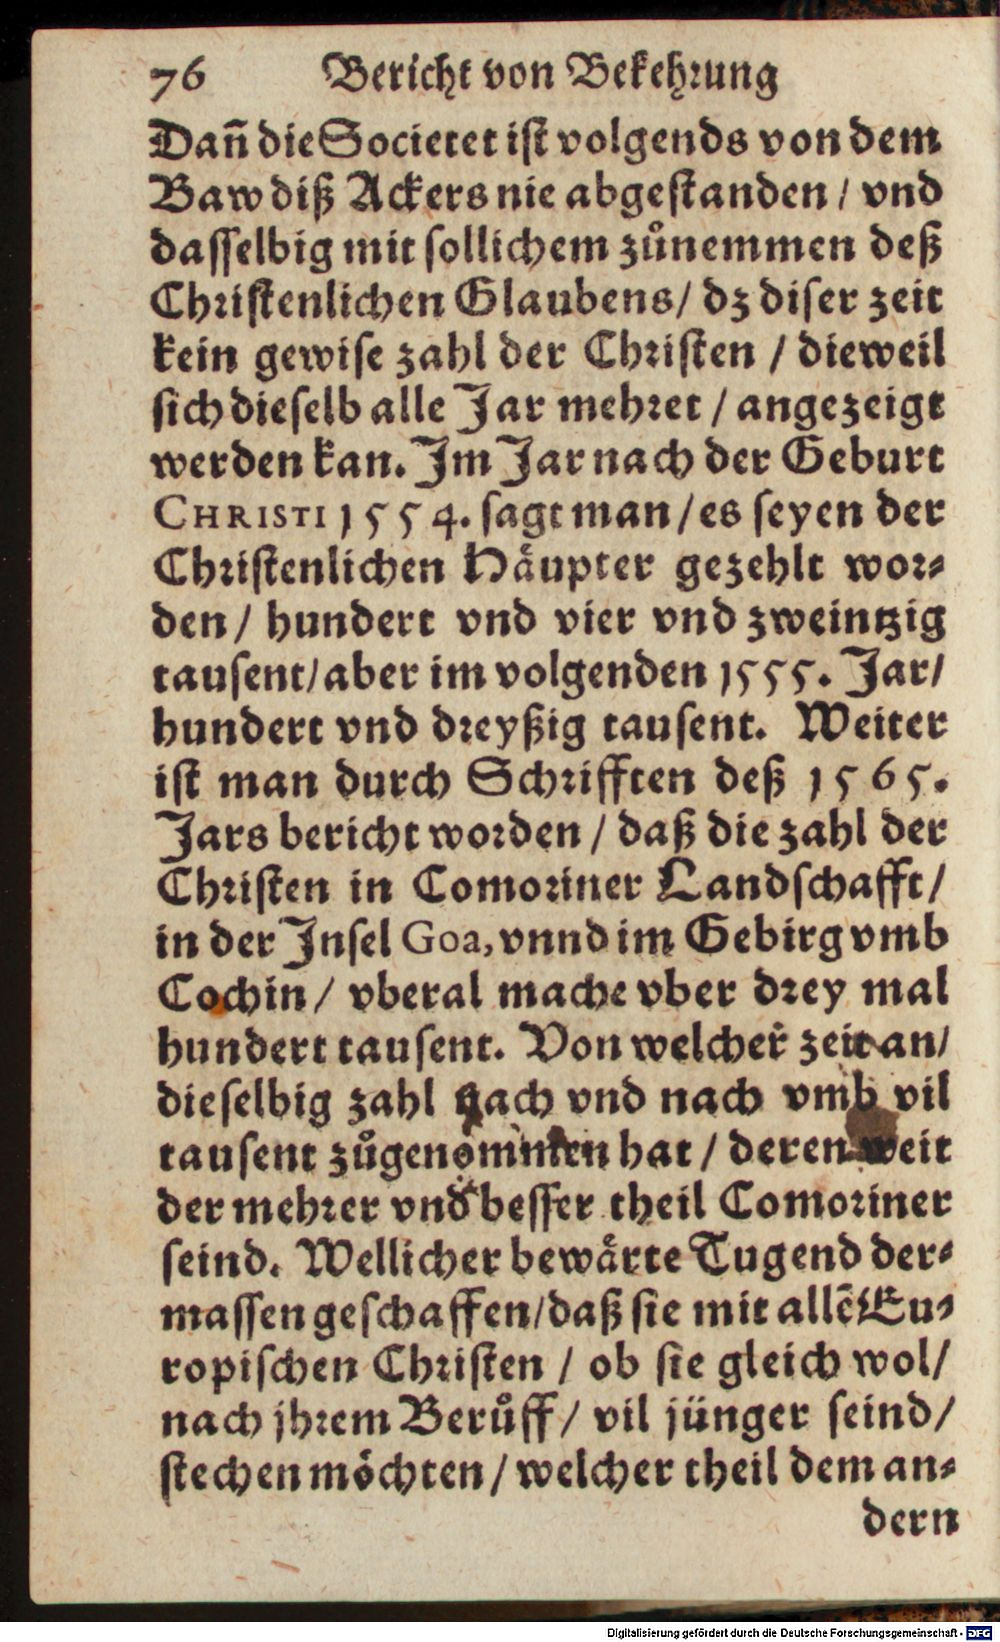 76 Bericht von Bekehrung
Dañ die Societet ist volgends von dem
Baw diß Ackers nie abgestanden / vnd
dasselbig mit sollichem zůnemmen deß
Christenlichen Glaubens / dz diser zeit
kein gewise zahl der Christen / dieweil
sich dieselb alle Jar mehret / angezeigt
werden kan. Im Jar nach der Geburt
CHRISTI 1554. sagt man / es seyen der
Christenlichen Häupter gezehlt wor-
den / hundert vnd vier vnd zweintzig
tausent / aber im volgenden 1555. Jar /
hundert vnd dreyßig tausent. Weiter
ist man durch Schrifften deß 1565.
Jars bericht worden / daß die zahl der
Christen in Comoriner Landschafft /
in der Insel Goa, vnnd im Gebirg vmb
Cochin / vberal mache vber drey mal
hundert tausent. Von welcher zeit an /
dieselbig zahl nach vnd nach vmb vil
tausent zůgenommen hat / deren weit
der mehrer vnd besser theil Comoriner
seind. Wellicher bewärte Tugend der-
massen geschaffen / daß sie mit allē Eu-
ropischen Christen / ob sie gleich wol /
nach jhrem Berůff / vil jünger seind /
stechen möchten / welcher theil dem an-
dern
Digitalisierung gefördert durch die Deutsche Forschungsgemeinschaft - DFG